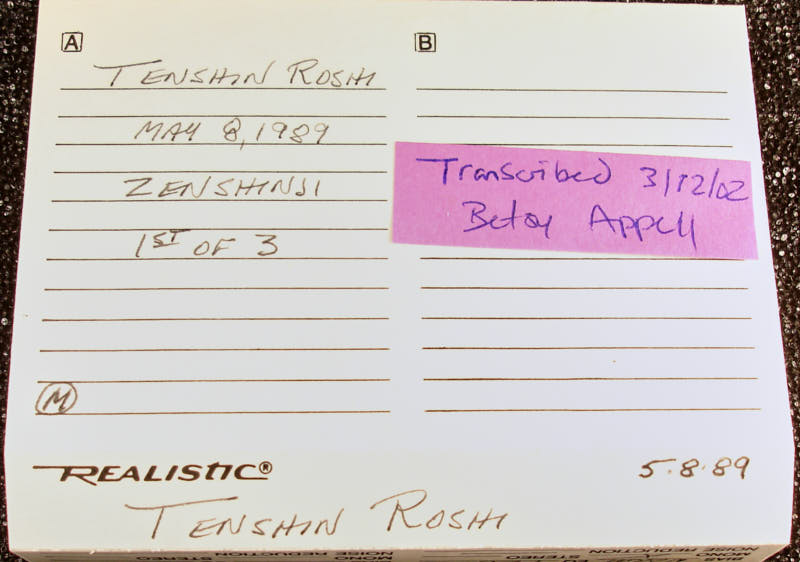 A
TENSHIN ROSHI
MAY 8, 1989
ZENSHINJI
1ST OF 3
M
B
Transcribed 3/12/02
Betsy Appell
REALISTIC®
5·8·89
TENSHIN ROSHI
NOISE REDUCTION
MONO STEREO
BIAS
NOISE REDUCTION
MONO STEREO